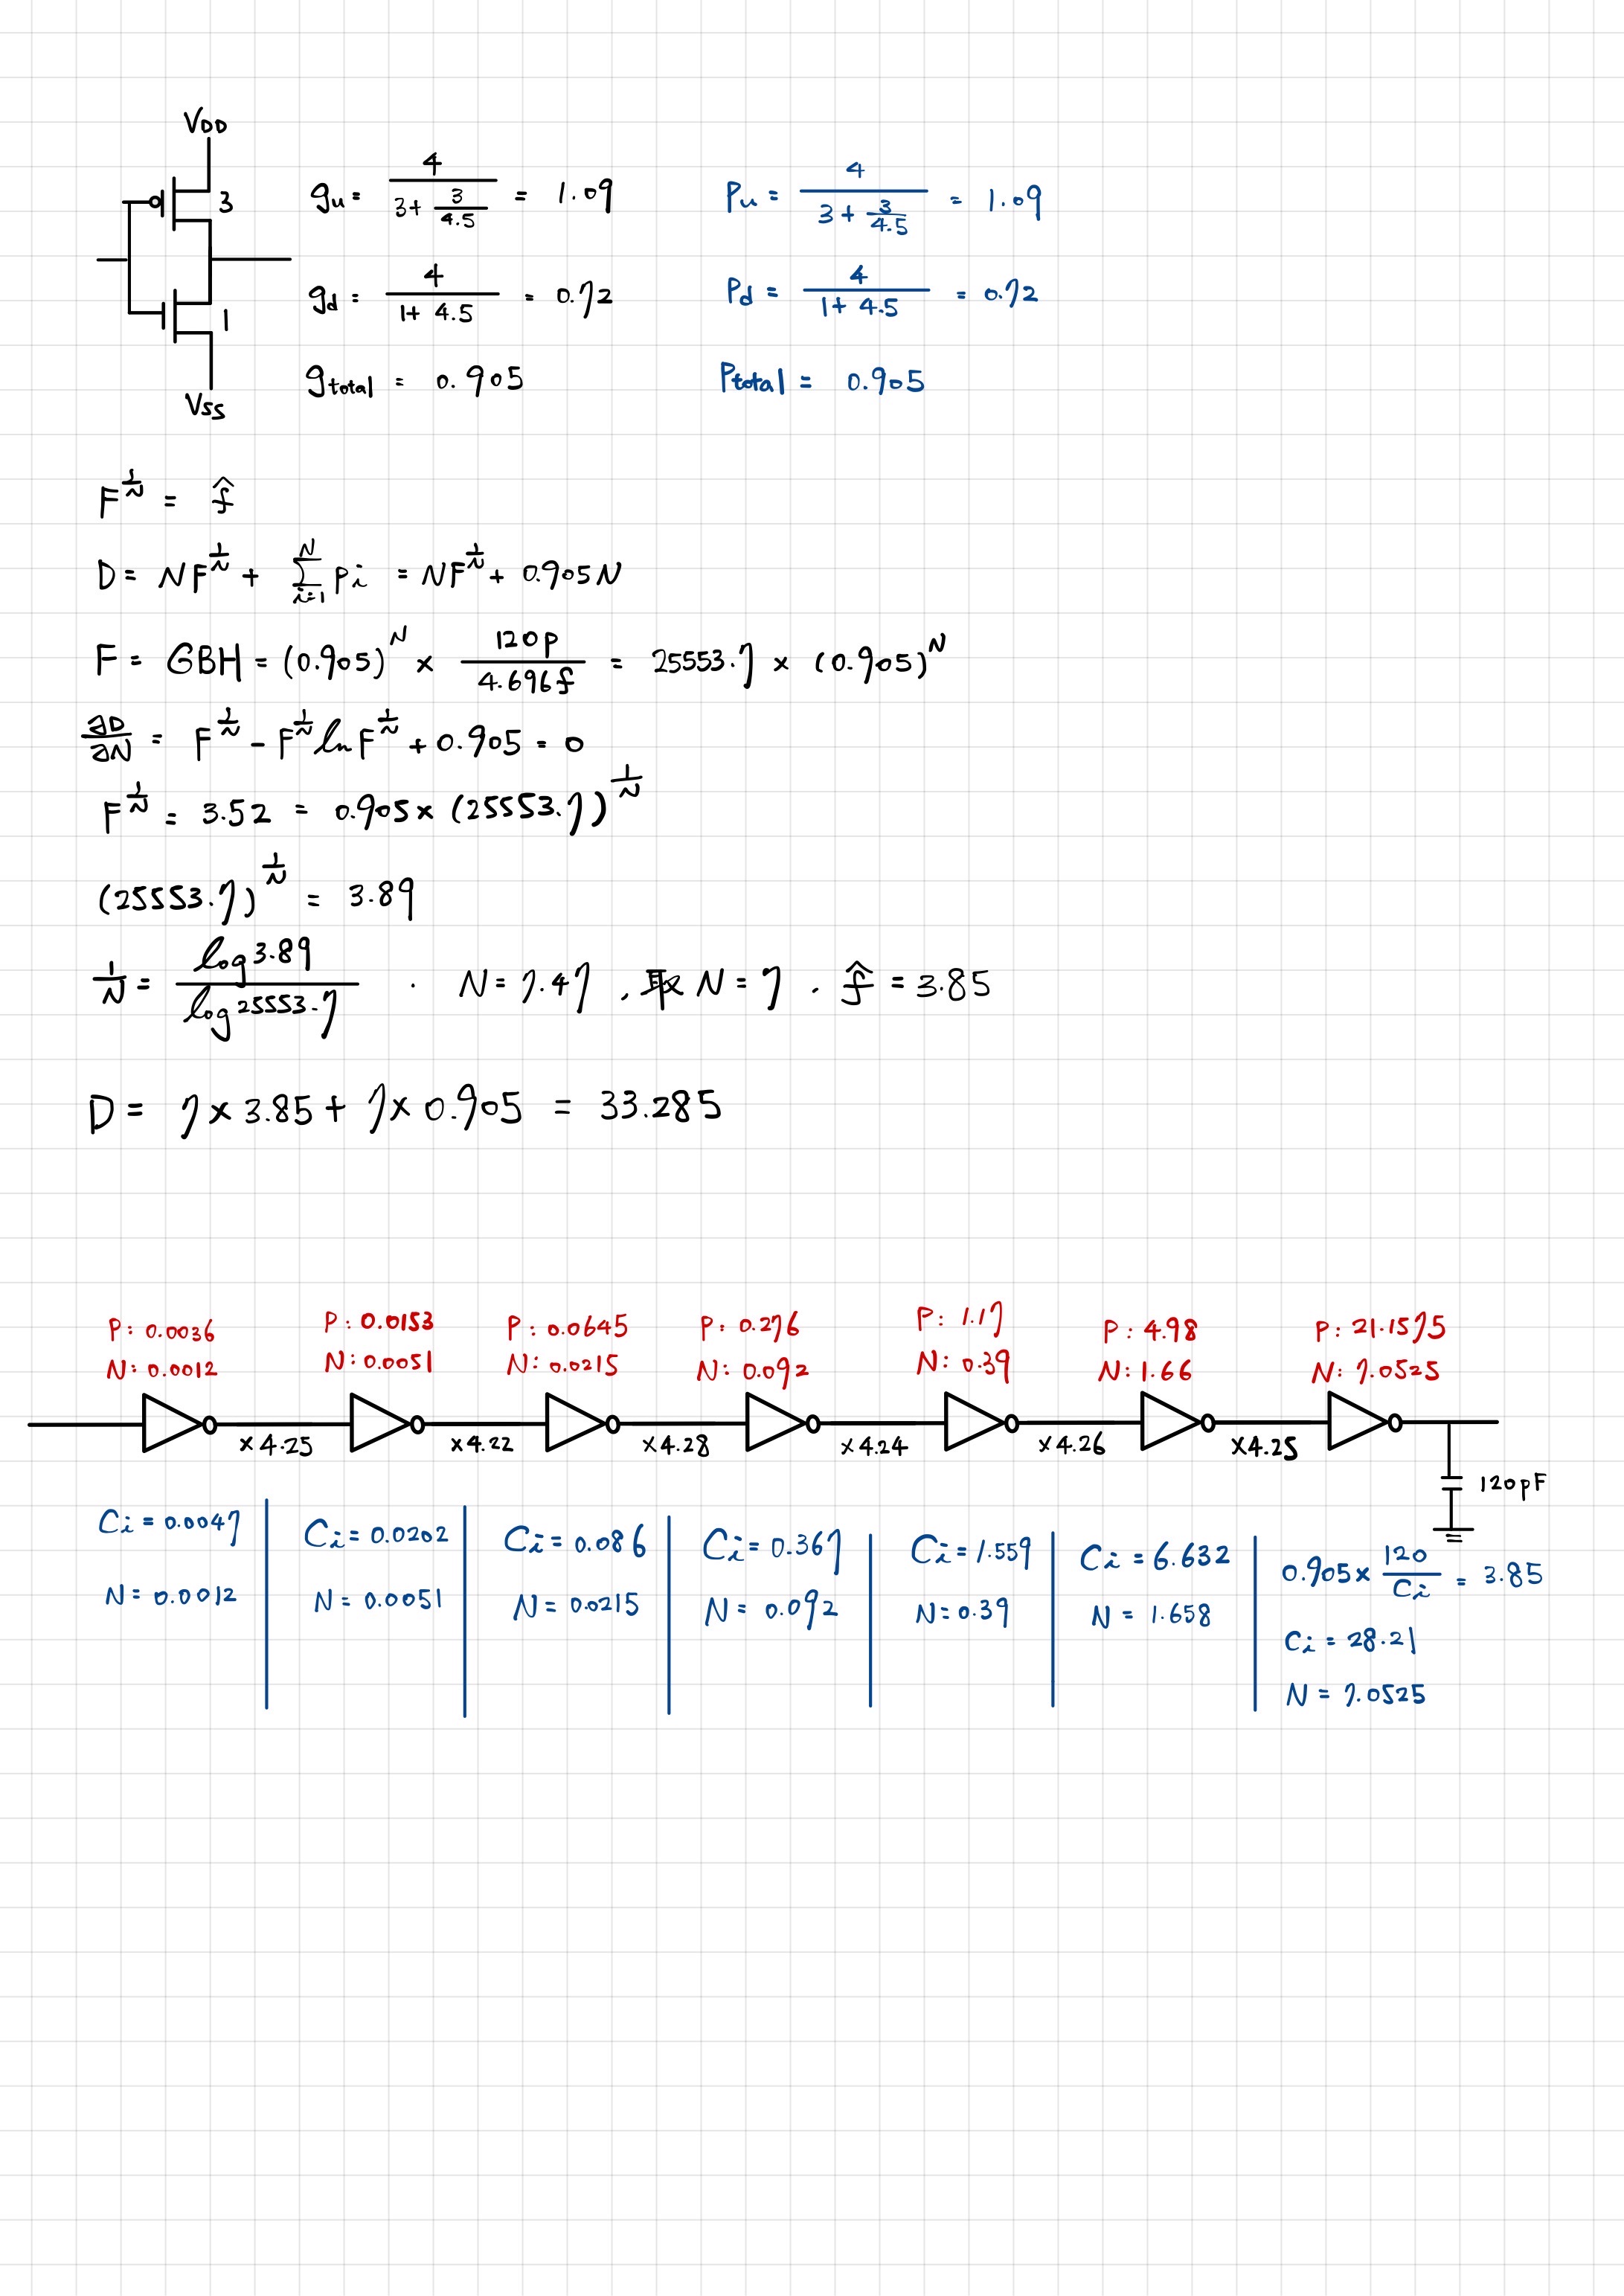 VDD
3
1
VSS
gu = 4 / (3 + 3/4.5) = 1.09
gd = 4 / (1 + 4.5) = 0.72
gtotal = 0.905
Pu = 4 / (3 + 3/4.5) = 1.09
Pd = 4 / (1 + 4.5) = 0.72
Ptotal = 0.905
F^(1/N) = f̂
D = NF^(1/N) + Σ_{i=1}^{N} pi = NF^(1/N) + 0.905N
F = GBH = (0.905)^N × 120p / 4.696f = 25553.7 × (0.905)^N
∂D/∂N = F^(1/N) - F^(1/N) ln F^(1/N) + 0.905 = 0
F^(1/N) = 3.52 = 0.905 × (25553.7)^(1/N)
(25553.7)^(1/N) = 3.89
1/N = log 3.89 / log 25553.7 . N = 7.47 , 取 N = 7 . f̂ = 3.85
D = 7 × 3.85 + 7 × 0.905 = 33.285
P: 0.0036 P: 0.0153 P: 0.0645 P: 0.276 P: 1.17 P: 4.98 P: 21.1575
N: 0.0012 N: 0.0051 N: 0.0215 N: 0.092 N: 0.39 N: 1.66 N: 7.0525
×4.25 ×4.22 ×4.28 ×4.24 ×4.26 ×4.25
120pF
Ci = 0.0047
N = 0.0012
Ci = 0.0202
N = 0.0051
Ci = 0.086
N = 0.0215
Ci = 0.367
N = 0.092
Ci = 1.559
N = 0.39
Ci = 6.632
N = 1.658
0.905 × 120 / Ci = 3.85
Ci = 28.21
N = 7.0525